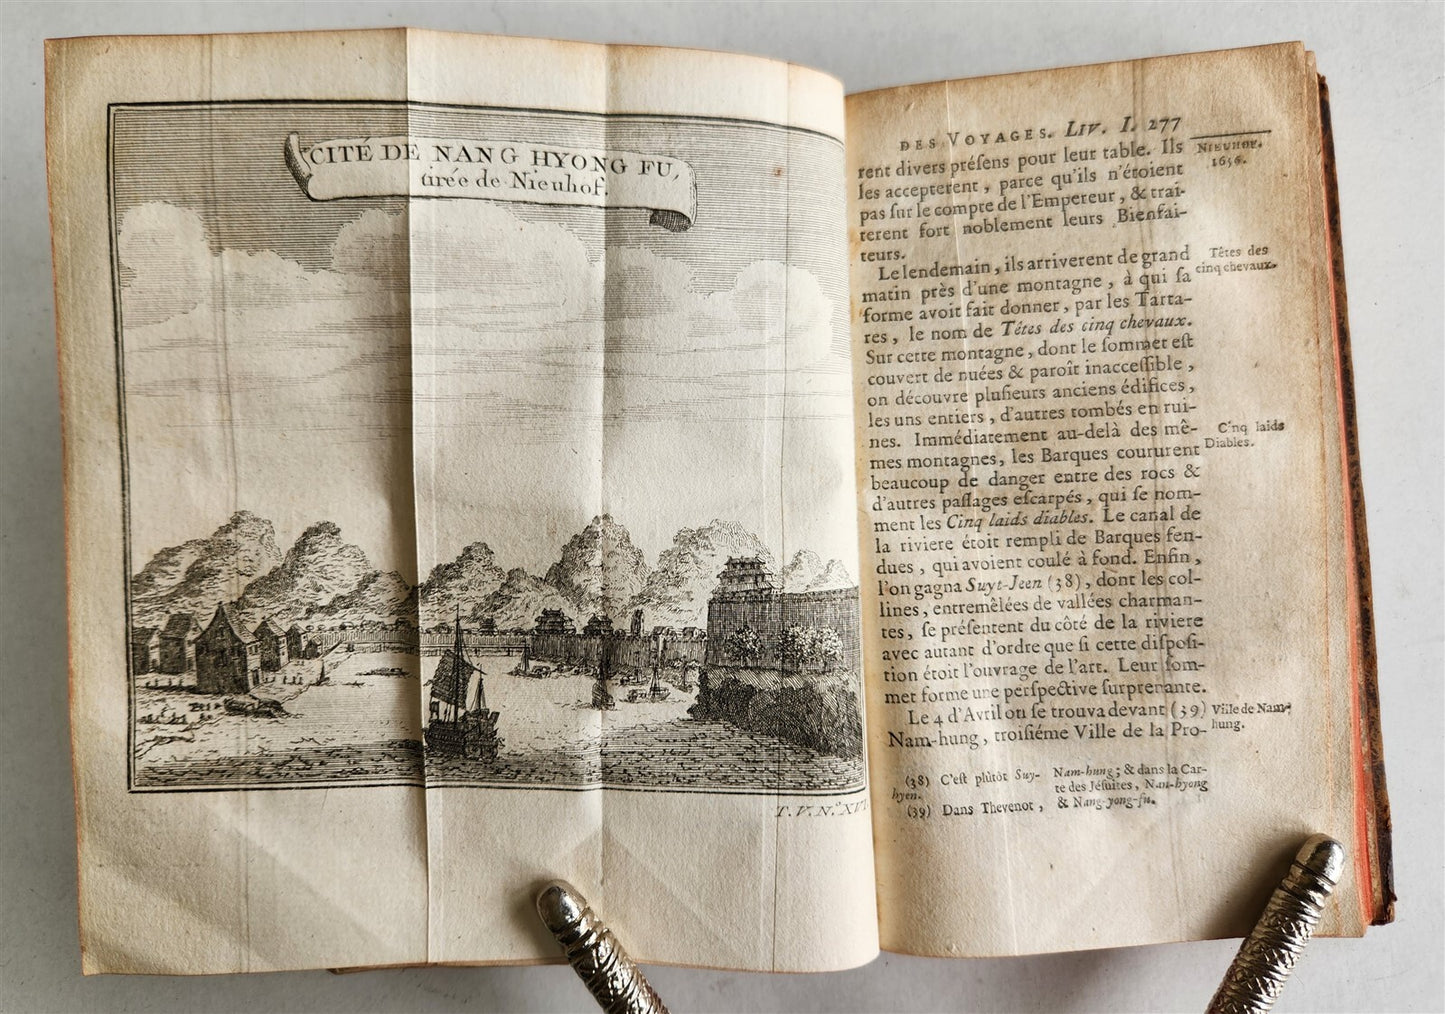 CITÉ DE NANG HYONG FU,
tirée de Nieuhof.
T. V. N.º XVI.
DES VOYAGES. LIV. I. 277
NIEUHOF.
1656.
rent divers présens pour leur table. Ils
les accepterent, parce qu'ils n'étoient
pas ſur le compte de l'Empereur, & trai-
terent fort noblement leurs Bienfai-
teurs.
Le lendemain, ils arriverent de grand
matin près d'une montagne, à qui ſa
forme avoit fait donner, par les Tarta-
res, le nom de Tétes des cinq chevaux.
Sur cette montagne, dont le ſommet eſt
couvert de nuées & paroît inacceſſible,
on découvre pluſieurs anciens édifices,
les uns entiers, d'autres tombés en rui-
nes. Immédiatement au-delà des mê-
mes montagnes, les Barques coururent
beaucoup de danger entre des rocs &
d'autres paſſages eſcarpés, qui ſe nom-
ment les Cinq laids diables. Le canal de
la riviere étoit rempli de Barques fen-
dues, qui avoient coulé à fond. Enfin,
l'on gagna Suyt-Jeen (38), dont les col-
lines, entremêlées de vallées charman-
tes, ſe préſentent du côté de la riviere
avec autant d'ordre que ſi cette diſpoſi-
tion étoit l'ouvrage de l'art. Leur ſom-
met forme une perſpective ſurprenante.
Le 4 d'Avril on ſe trouva devant (39)
Nam-hung, troiſiéme Ville de la Pro-
Têtes des
cinq chevaux.
C'nq laids
Diables.
Ville de Nam-
hung.
(38) C'eſt plûtôt Suy-
hyen.
(39) Dans Thevenot,
Nam-hung; & dans la Car-
te des Jéſuites, Nan-hyong
& Nang-yong-fu.